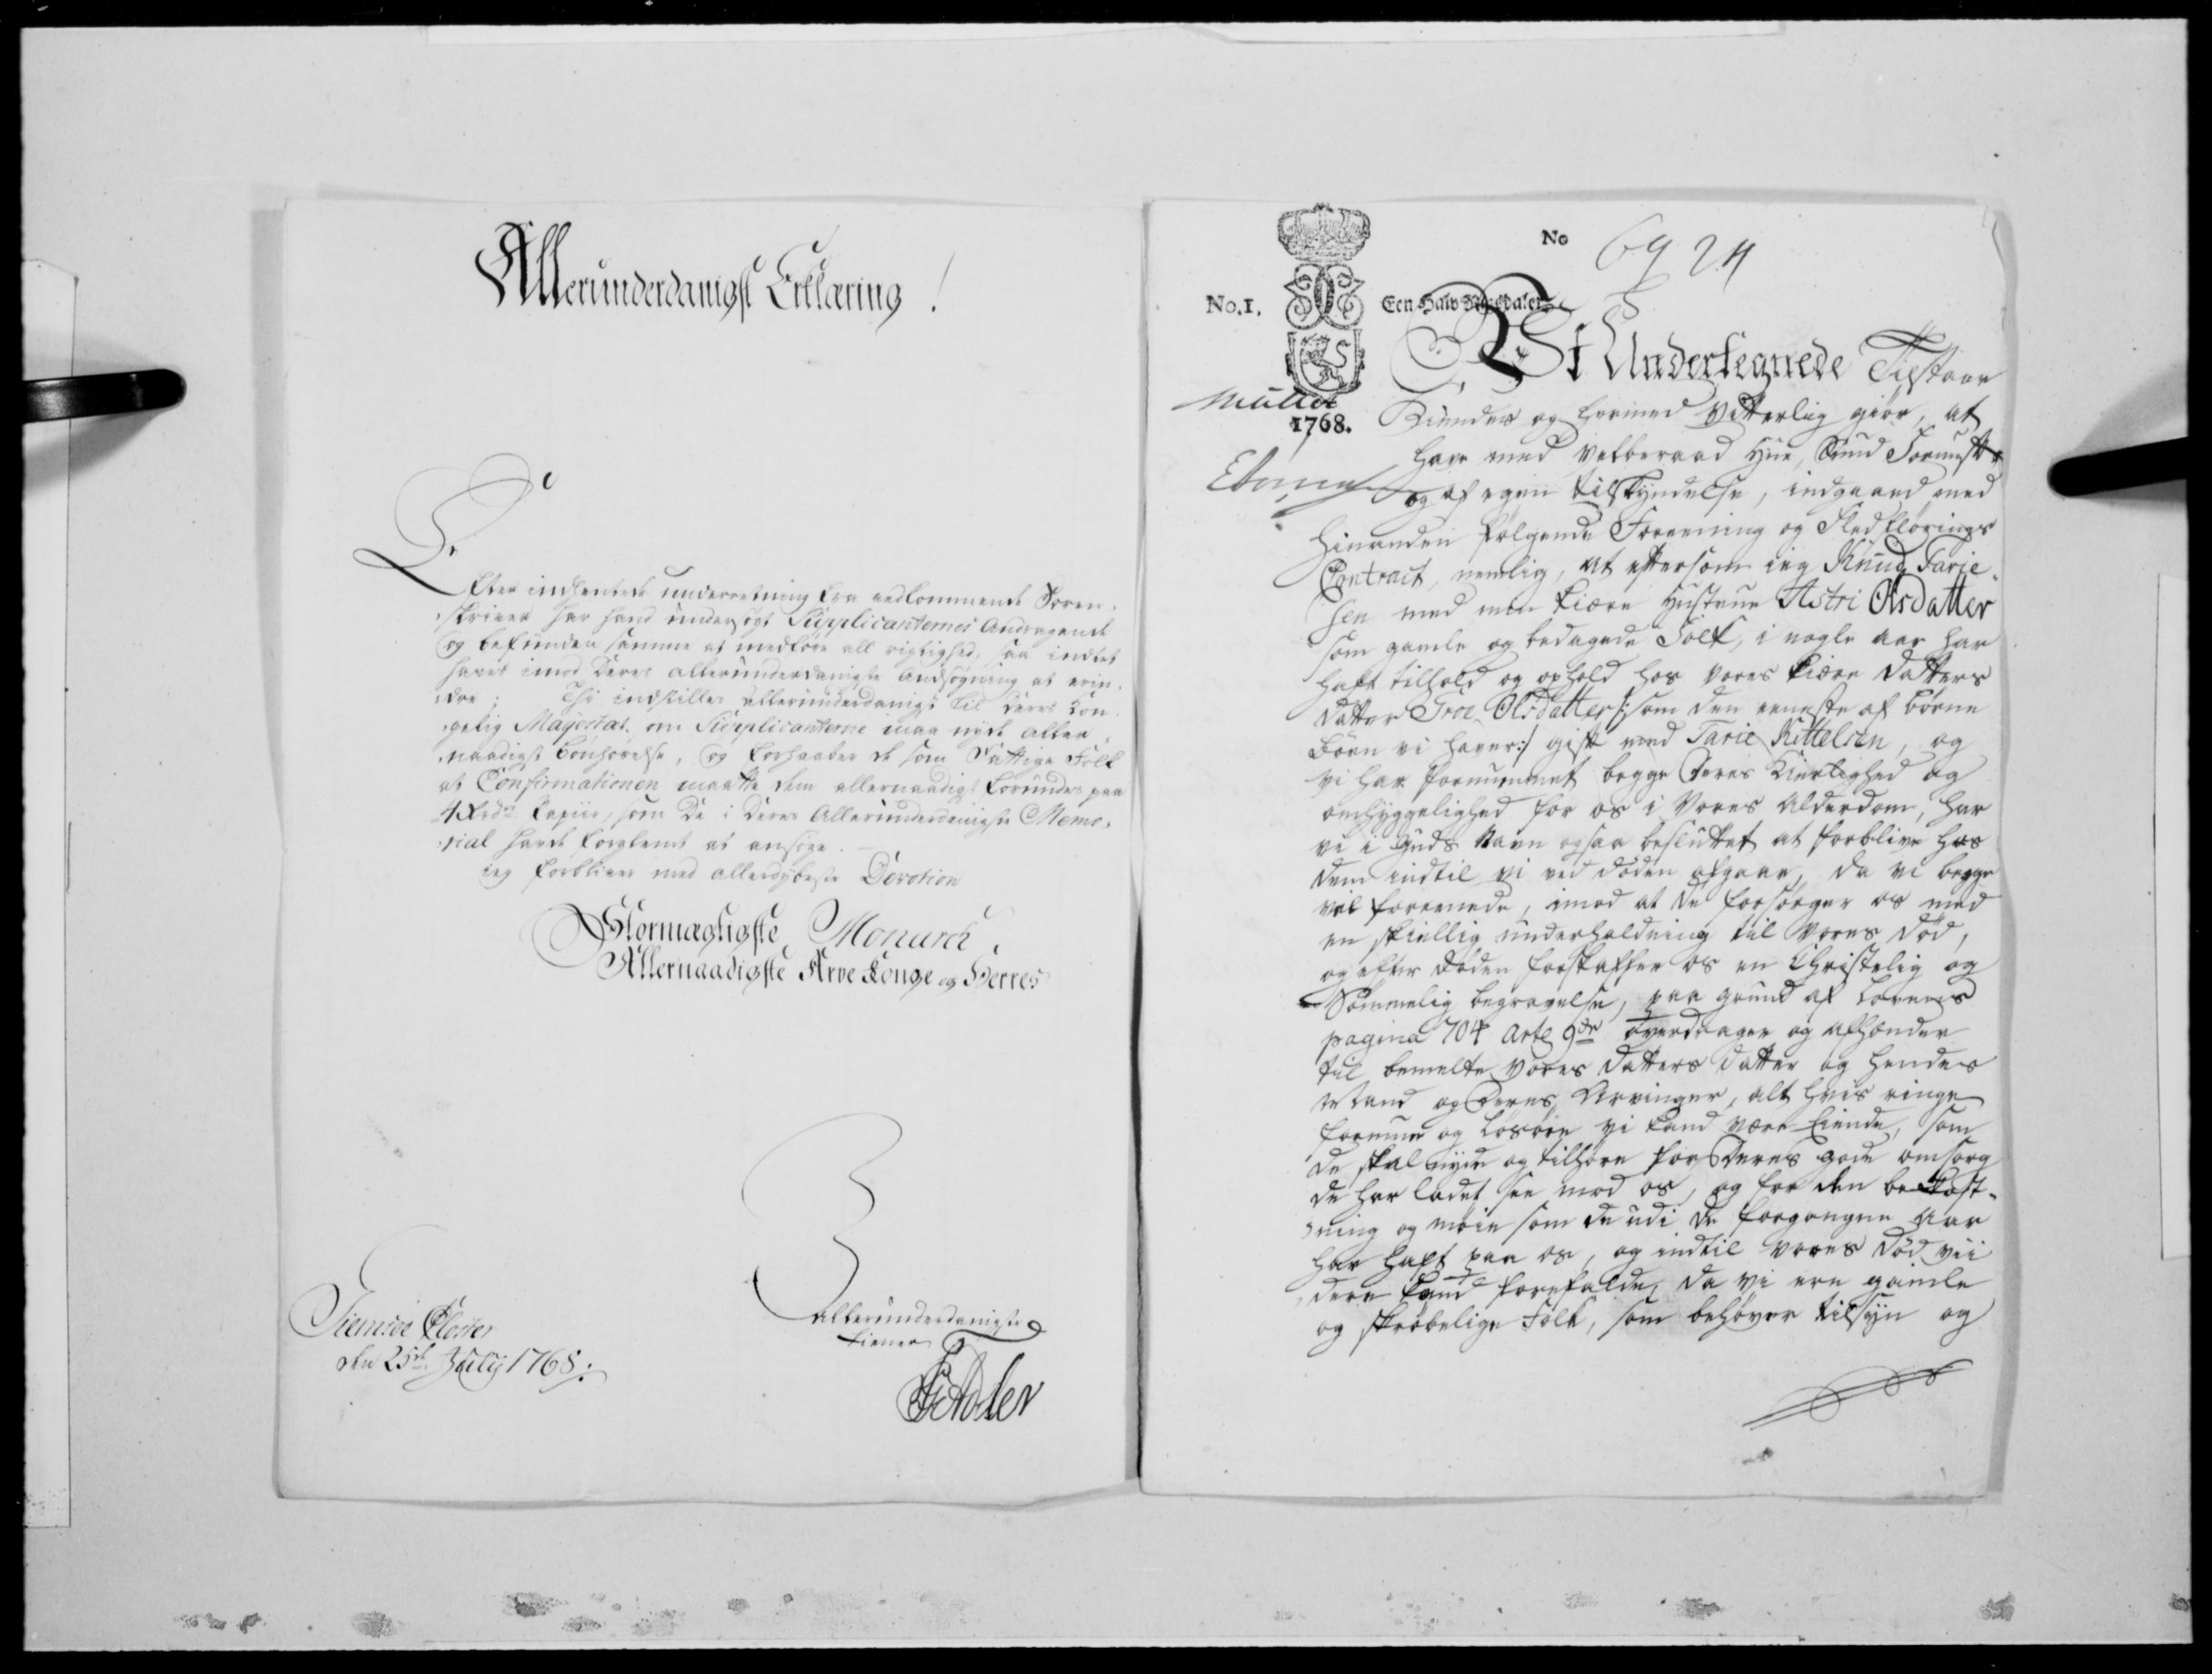 Allerunderdanigst Erklæring!
Efter indhentede underretning fra vedkommende Soren-
skriver har hand undersøgt Supplicanternes Andragende
og befunden samme at medføre all rigtighed, saa indtet
haves imod deres allerunderdanigste Andsøgning at erin-
dre; Thi indstilles allerunderdanigst til Deres Kon-
gelig Majestæt, om Supplicanterne maa nyde aller-
naadigst bønhørelse, og forhaaber de som fattige Folk
at Confirmationen maatte dem allernaadigst forundes paa
4 Rdr Papiir, som De i deres Allerunderdanigste Memo-
rial havde forglemt at ansøge.
ieg forbliver med allerdybeste Devotion
Stormægtigste Monarch,
Allernaadigste Arve Konge og Herres
Giemsøe Kloster
den 25de Julij 1768.
allerunderdanigste
tiener
Adeler
No 6924
No. 1. Een Halv Rixdaler
1768.
Müller
Vi Undertegnede Tilstaar
Kiendes og hermed Vitterlig giør, at
have med velberaad Hue, Sund Fornuft
og af egen tilskyndelse, indgaaed med
hinanden følgende Foreening og Fledførings
Contract, nemlig, at eftersom ieg Knud Tarje-
sen med min kiære Hustrue Astri Olsdatter
som gamle og bedagede Folk, i nogle aar har
haft tilhold og ophold hos vores kiære Datters
Datter Groe Olsdatter /: som den eeneste af børne
Børn vi haver :/ gift med Tarje Kittelsen, og
vi har fornummet begge deres Kierlighed og
omhyggelighed for os i Vores Alderdom, har
vi i Guds Navn ogsaa besluttet at forblive hos
dem indtil vi ved døden afgaar, da vi begge
vel foreenede, imod at de forsørger os med
en skiellig underholdning til vores død,
og efter døden forskaffer os en Christelig og
Sømmelig begravelse, paa grund af Lovens
pagina 704 Art 9de overdrager og afhænder
til bemelte vores Datters Datter og hendes
Mand og deres Arvinger, alt hvis ringe
formue og Løsøre vi kand være Eiende, som
de skal nyde og tilhøre for deres gode omsorg
de har ladet see mod os, og for den bekost-
ning og møie som de udi de forgangne Aar
har haft paa os, og indtil vores død vii
dere kand forefalde, da vi ere gamle
og skrøbelige Folk, som behøver tilsyn og